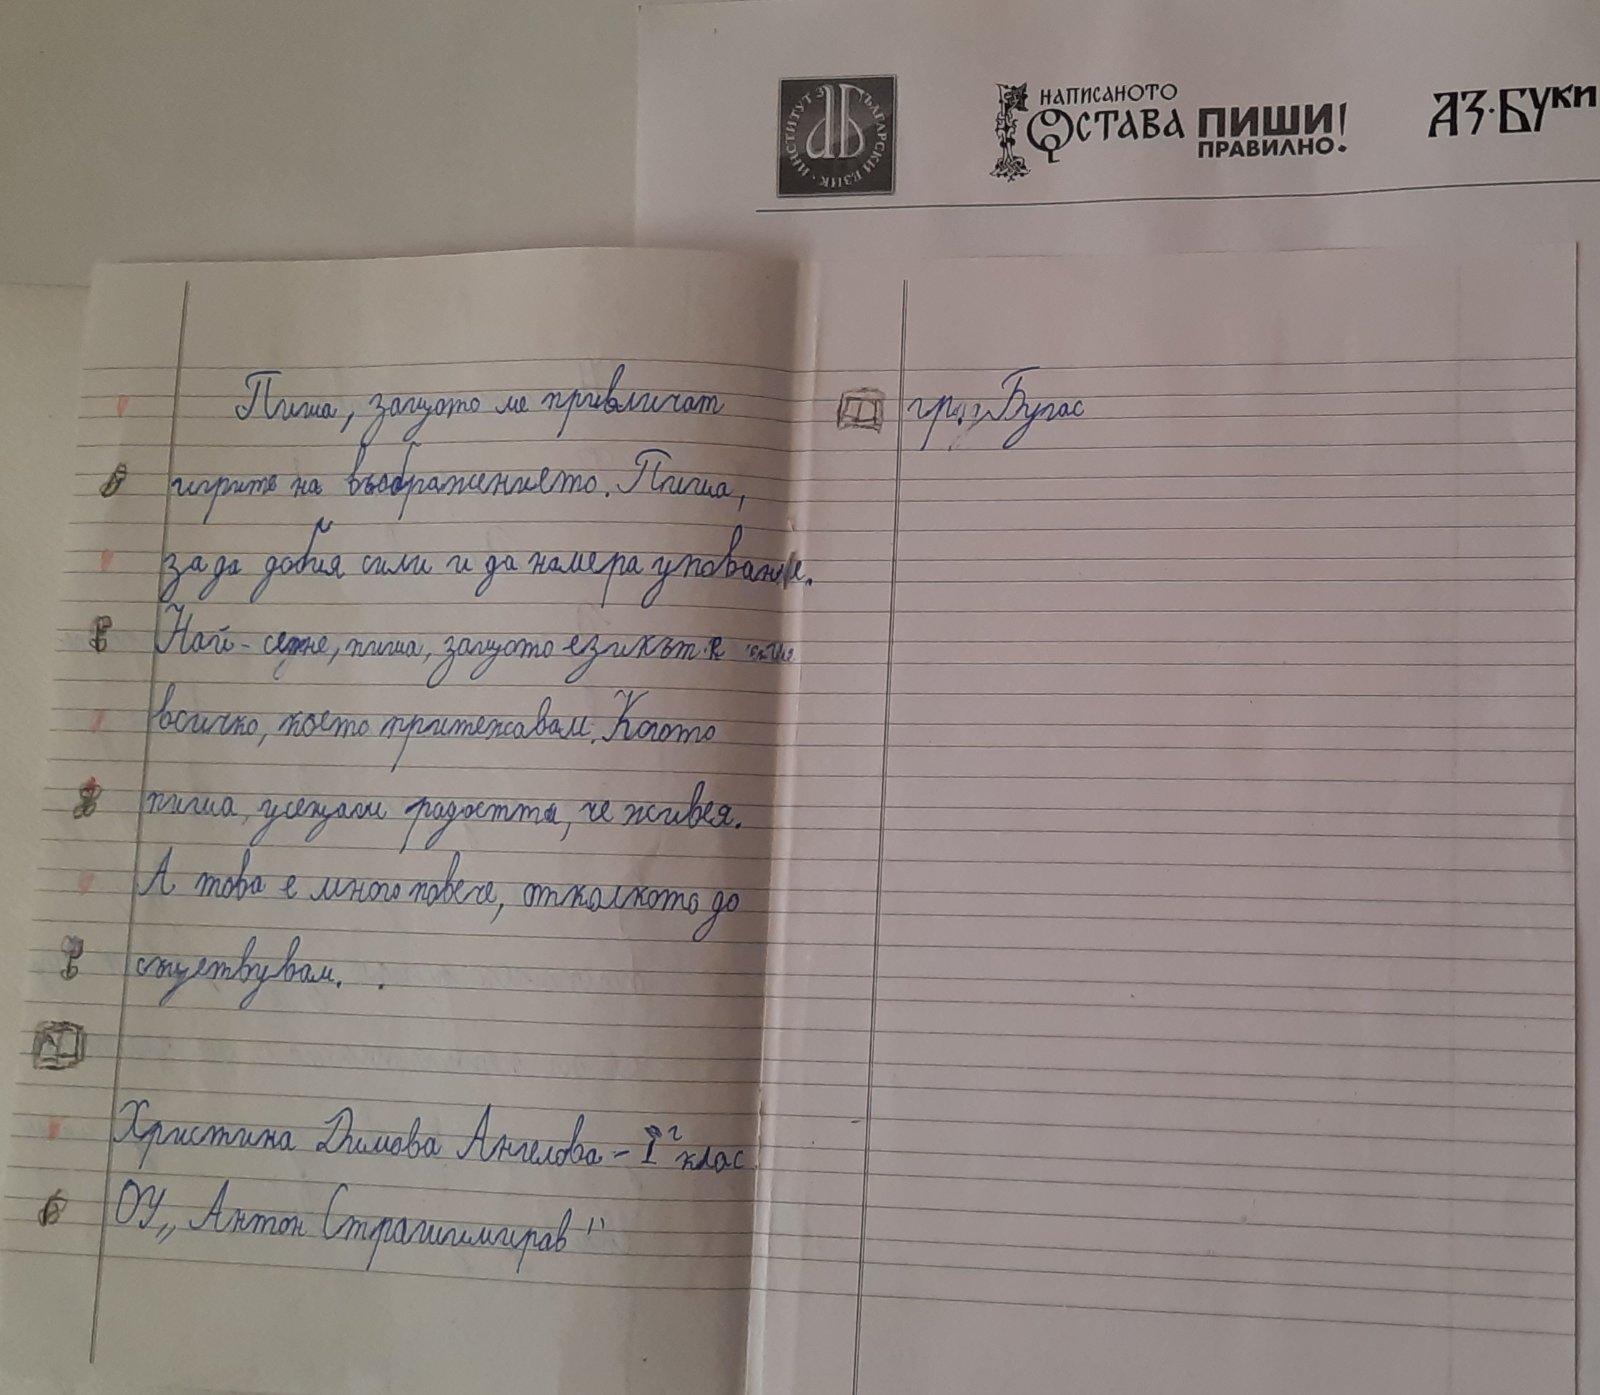 ИНСТИТУТ ЗА БЪЛГАРСКИ ЕЗИК
НАПИСАНОТО
ОСТАВА
ПИШИ
ПРАВИЛНО!
АЗ·БУКИ
Пиша, защото ме привличат
игрите на въображението. Пиша,
за да добия сили и да намеря упование.
Най-сетне, пиша, защото езикът е
всичко, което притежавам. Когато
пиша, усещам радостта, че живея.
А това е много повече, отколкото да
съществувам.
Христина Димова Ангелова - I г клас
ОУ „Антон Страшимиров"
гр. Бургас